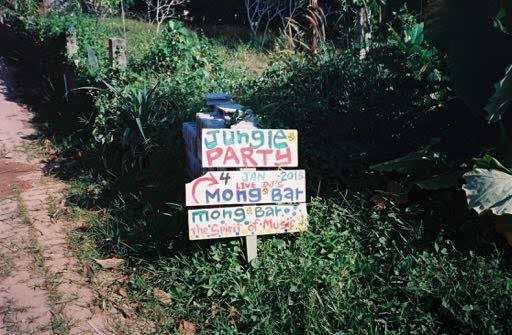 Jungle
PARTY
4 JAN 2015
LIVE DJ'S
Mong Bar
mong Bar.
The Spirit of Music